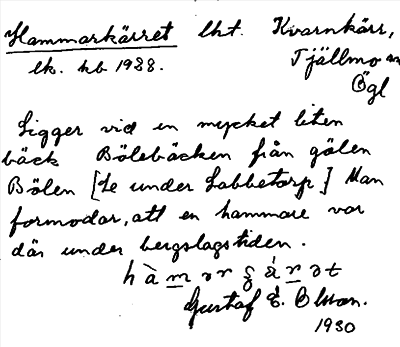 Hammarkärret lht. Kvarnkärr,
lk. hb 1928. Tjällmo sn
Ögl
Ligger vid en mycket liten
bäck Bölebäcken från gölen
Bölen [Se under Labbetorp.] Man
formodar, att en hammare var
där under bergslagstiden.
Gustaf E. Olsson.
1930